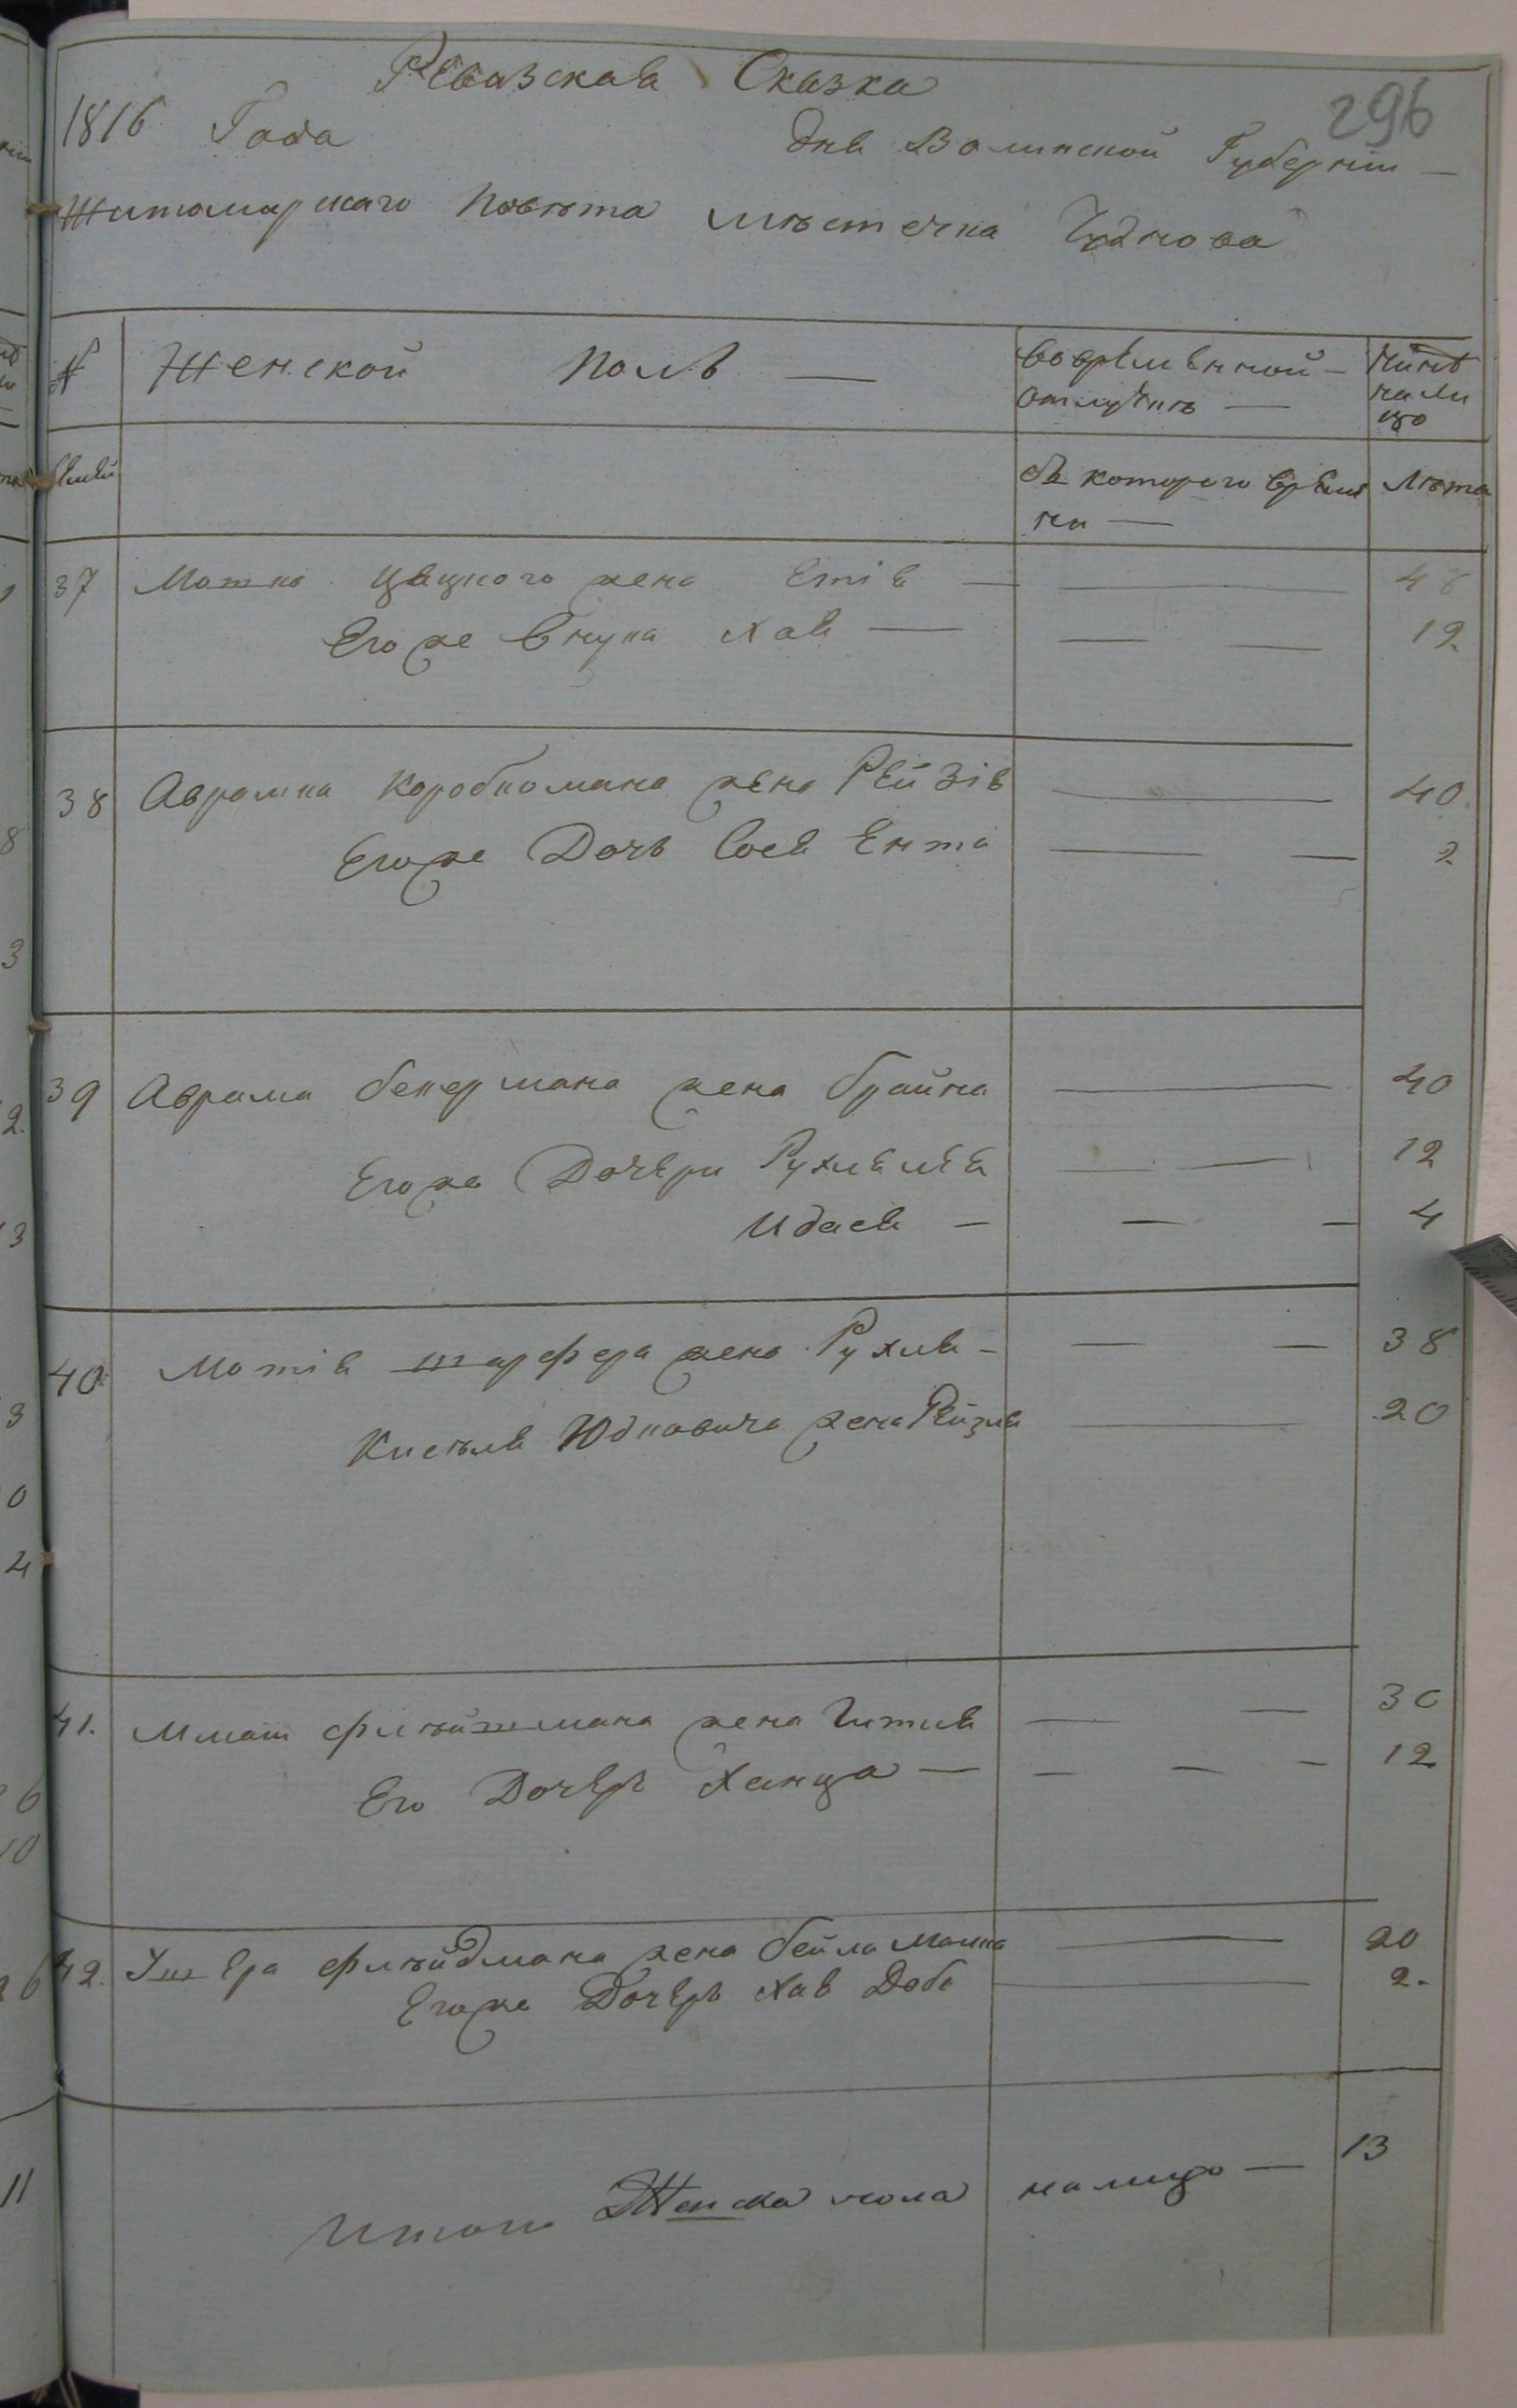 Ревизская Сказка
296
1816 Года дня Волинской Губернии —
Житомирскаго Повѣта мѣстечка Чуднова
№ Женской Полъ —
во временной — отлучкѣ —
Нинѣ на лицо
Семей
съ которого време
ни —
Лѣта
37 Мошка жена Етля — — 46
Его же внука Хая — — — 12
38 Аврамка Коробкомана жена Рейзя — 40
Егоже Дочь Сося Ента — — 2
39 Аврама бекермана жена брайна — 40
Егоже Дочери Рухля лѣя — — 12
Идася — — — 4
40 Мотя шарфера жена Рухля — — — 38
Кисѣля Юдковича жена Рейзля — 20
41. флѣйшмана жена Гитля — — 30
Его Дочерь Ханца — — — — 12
42. Ушера флѣйдмана жена бейла Малка — 20
Егоже Дочерь Хая Доба — 2.
Итого Женска пола на лицо — 13